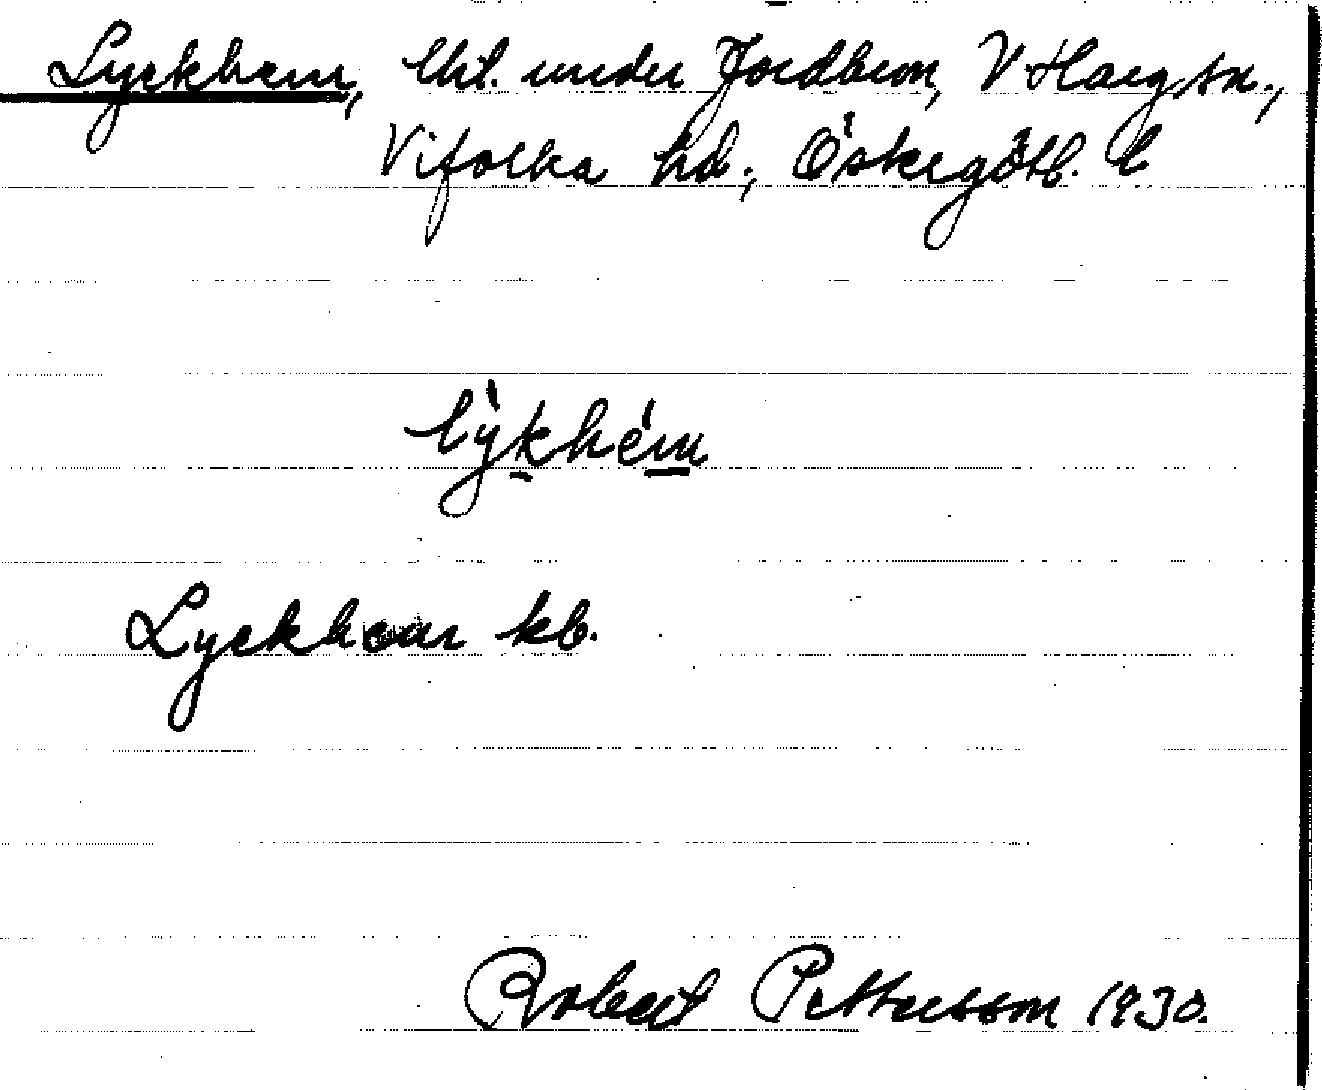 Lyckhem, lht. under Jordbron, V Harg sn.,
Vifolka hd., Östergötl. l
lỳkhém
Lyckhem kb.
Robert Pettersson 1930.